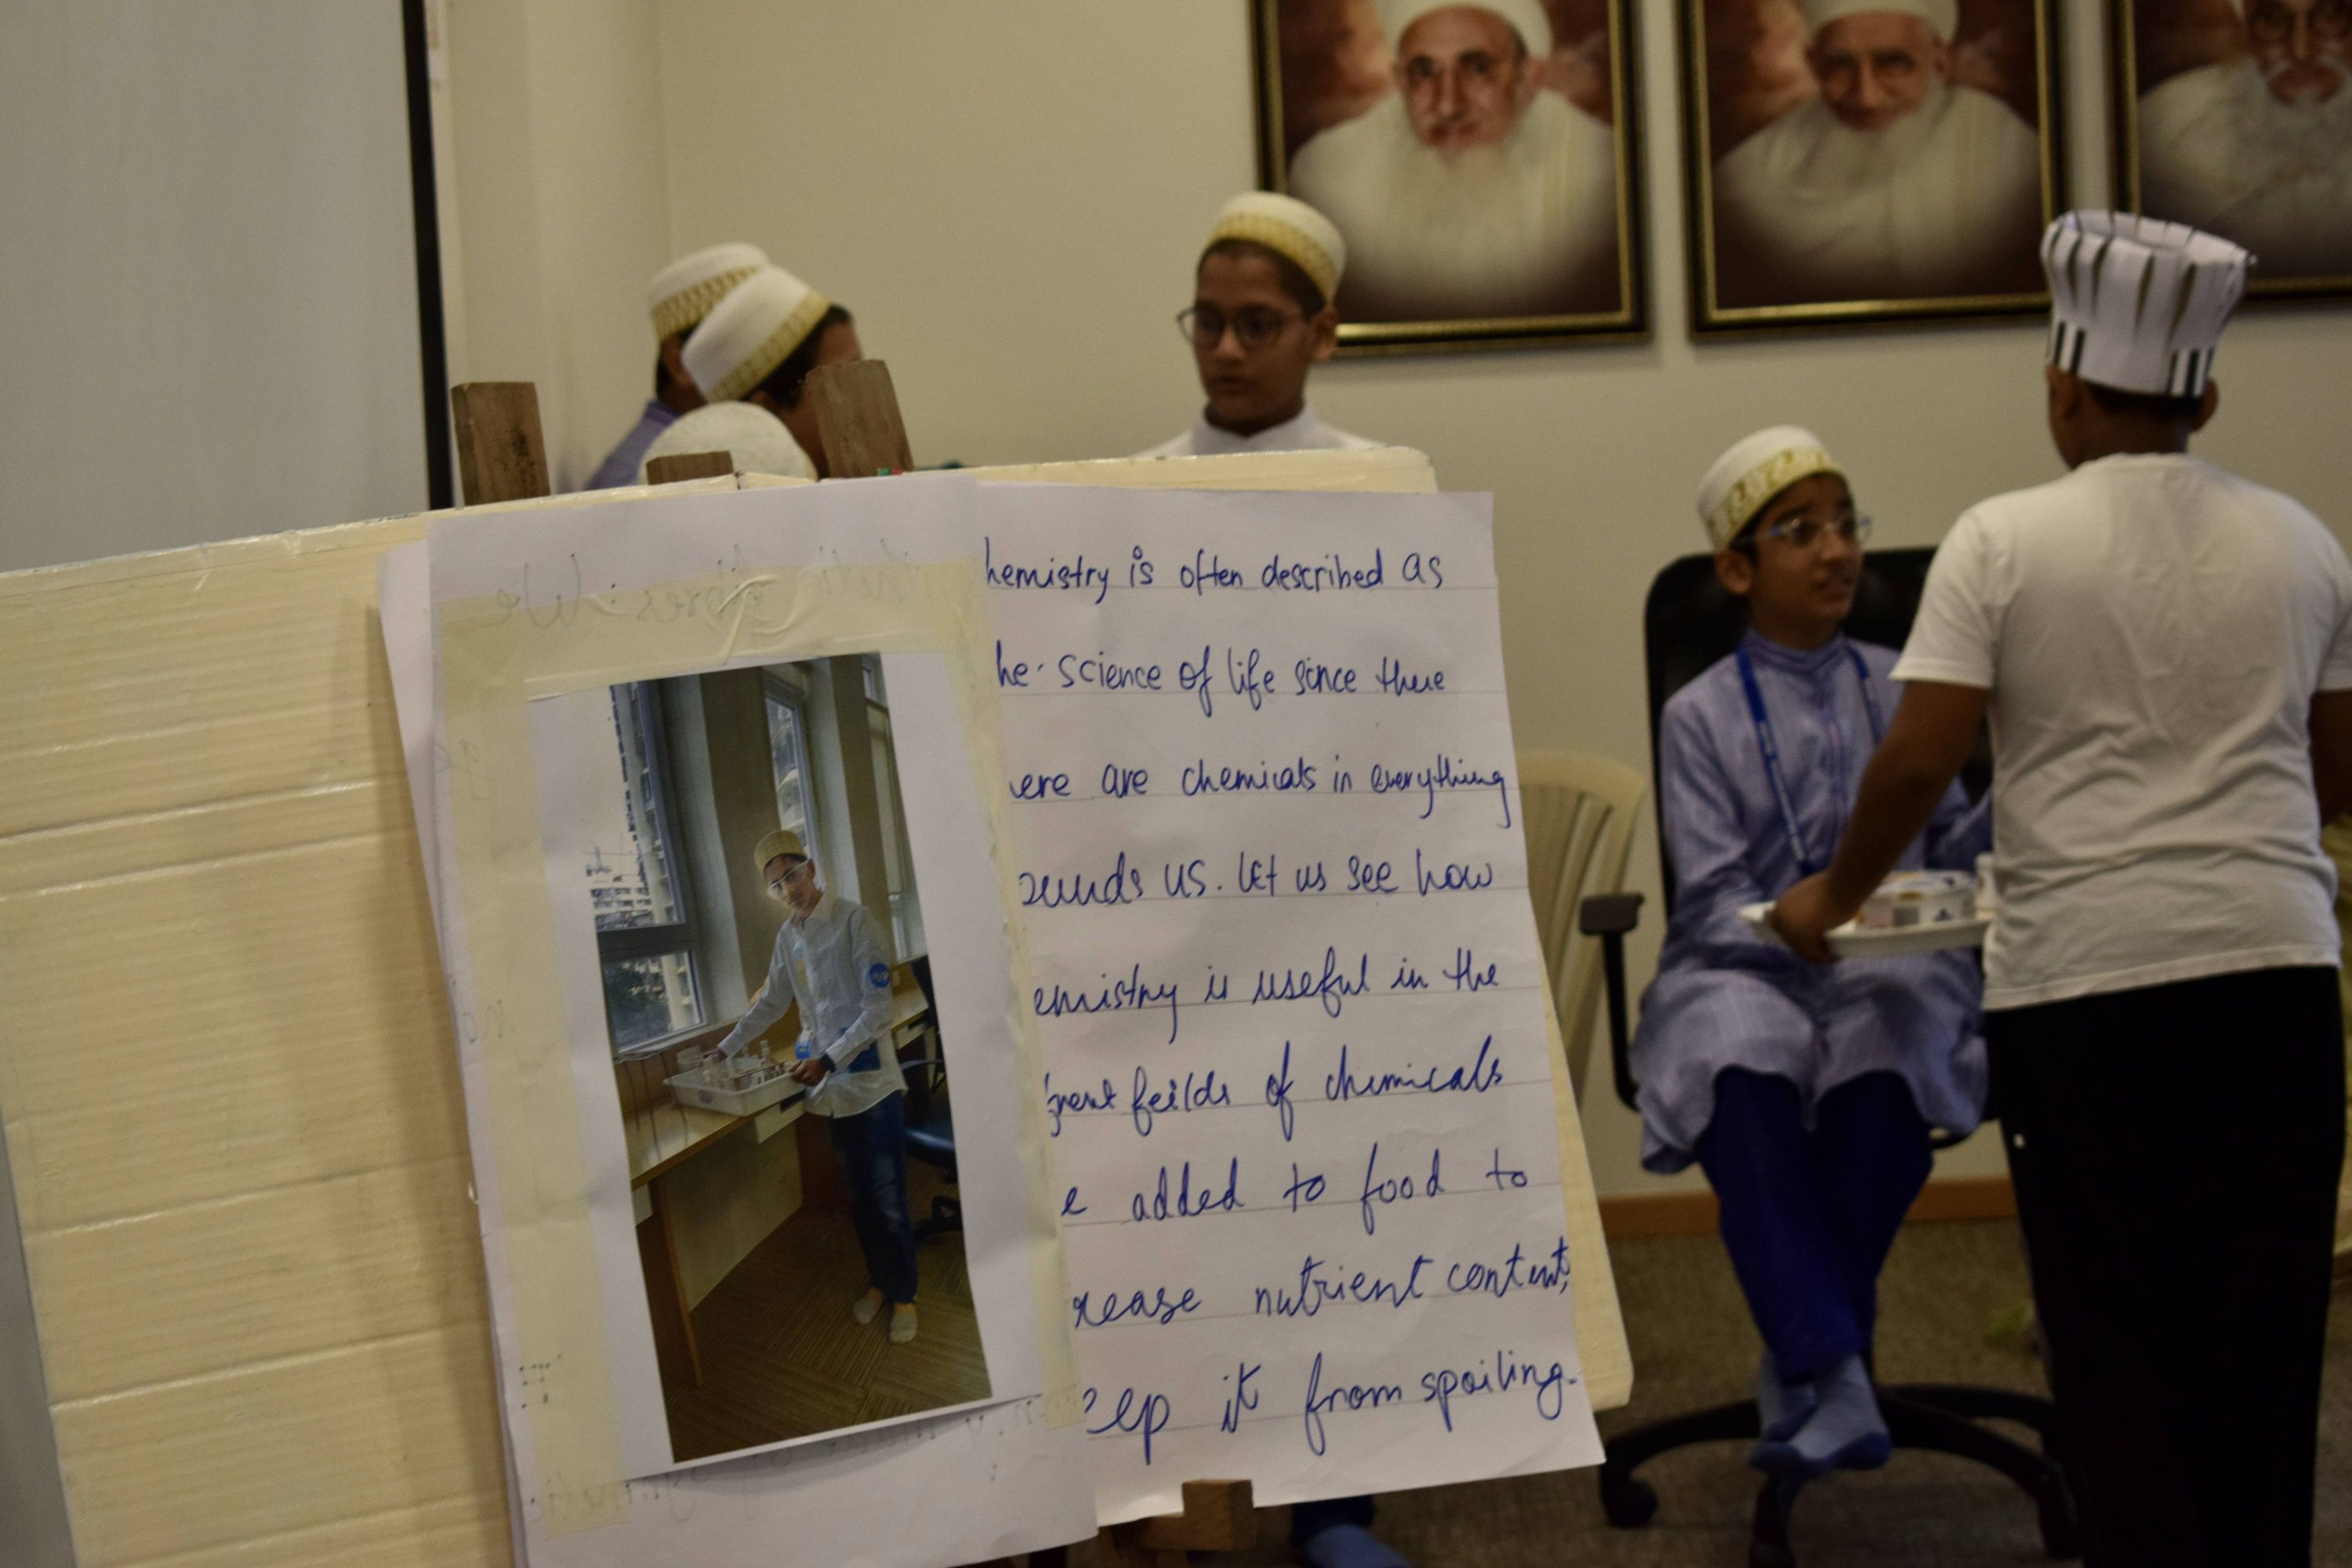 hemistry is often described as
he science of life since there
ere are chemicals in everything
ounds us. let us see how
emistry is useful in the
erent feilds of chemicals
e added to food to
rease nutrient content,
eep it from spoiling.